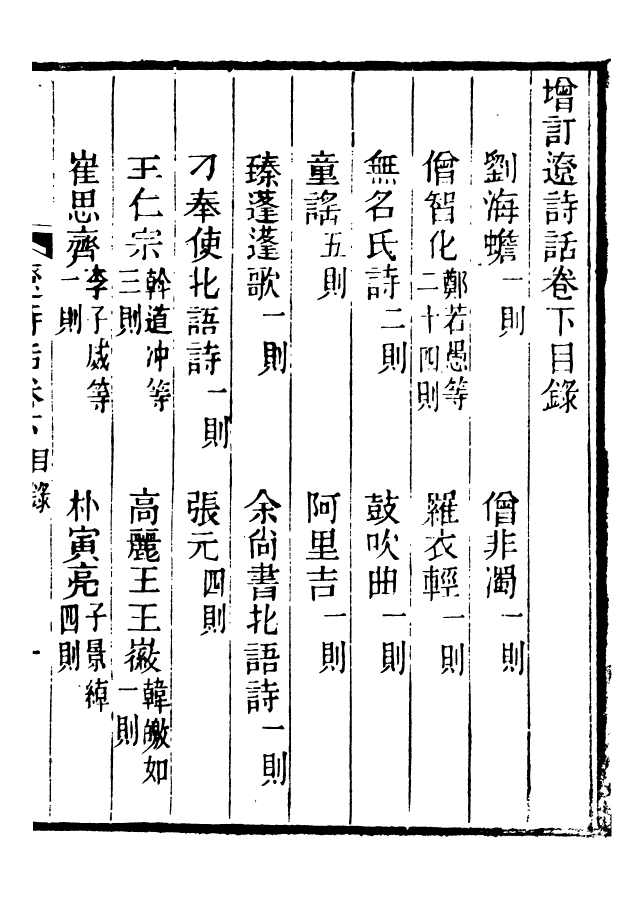 增訂遼詩話卷下目錄
劉海蟾一則　僧非濁一則
僧智化鄭若愚等二十四則　羅衣輕一則
無名氏詩二則　鼓吹曲一則
童謠五則　阿里吉一則
臻蓬蓬歌一則　余尚書北語詩一則
刁奉使北語詩一則　張元四則
王仁宗斡道冲等三則　高麗王王徽韓皦如一則
崔思齊李子威等一則　朴寅亮子景綽四則
遼詩話卷下目錄　一